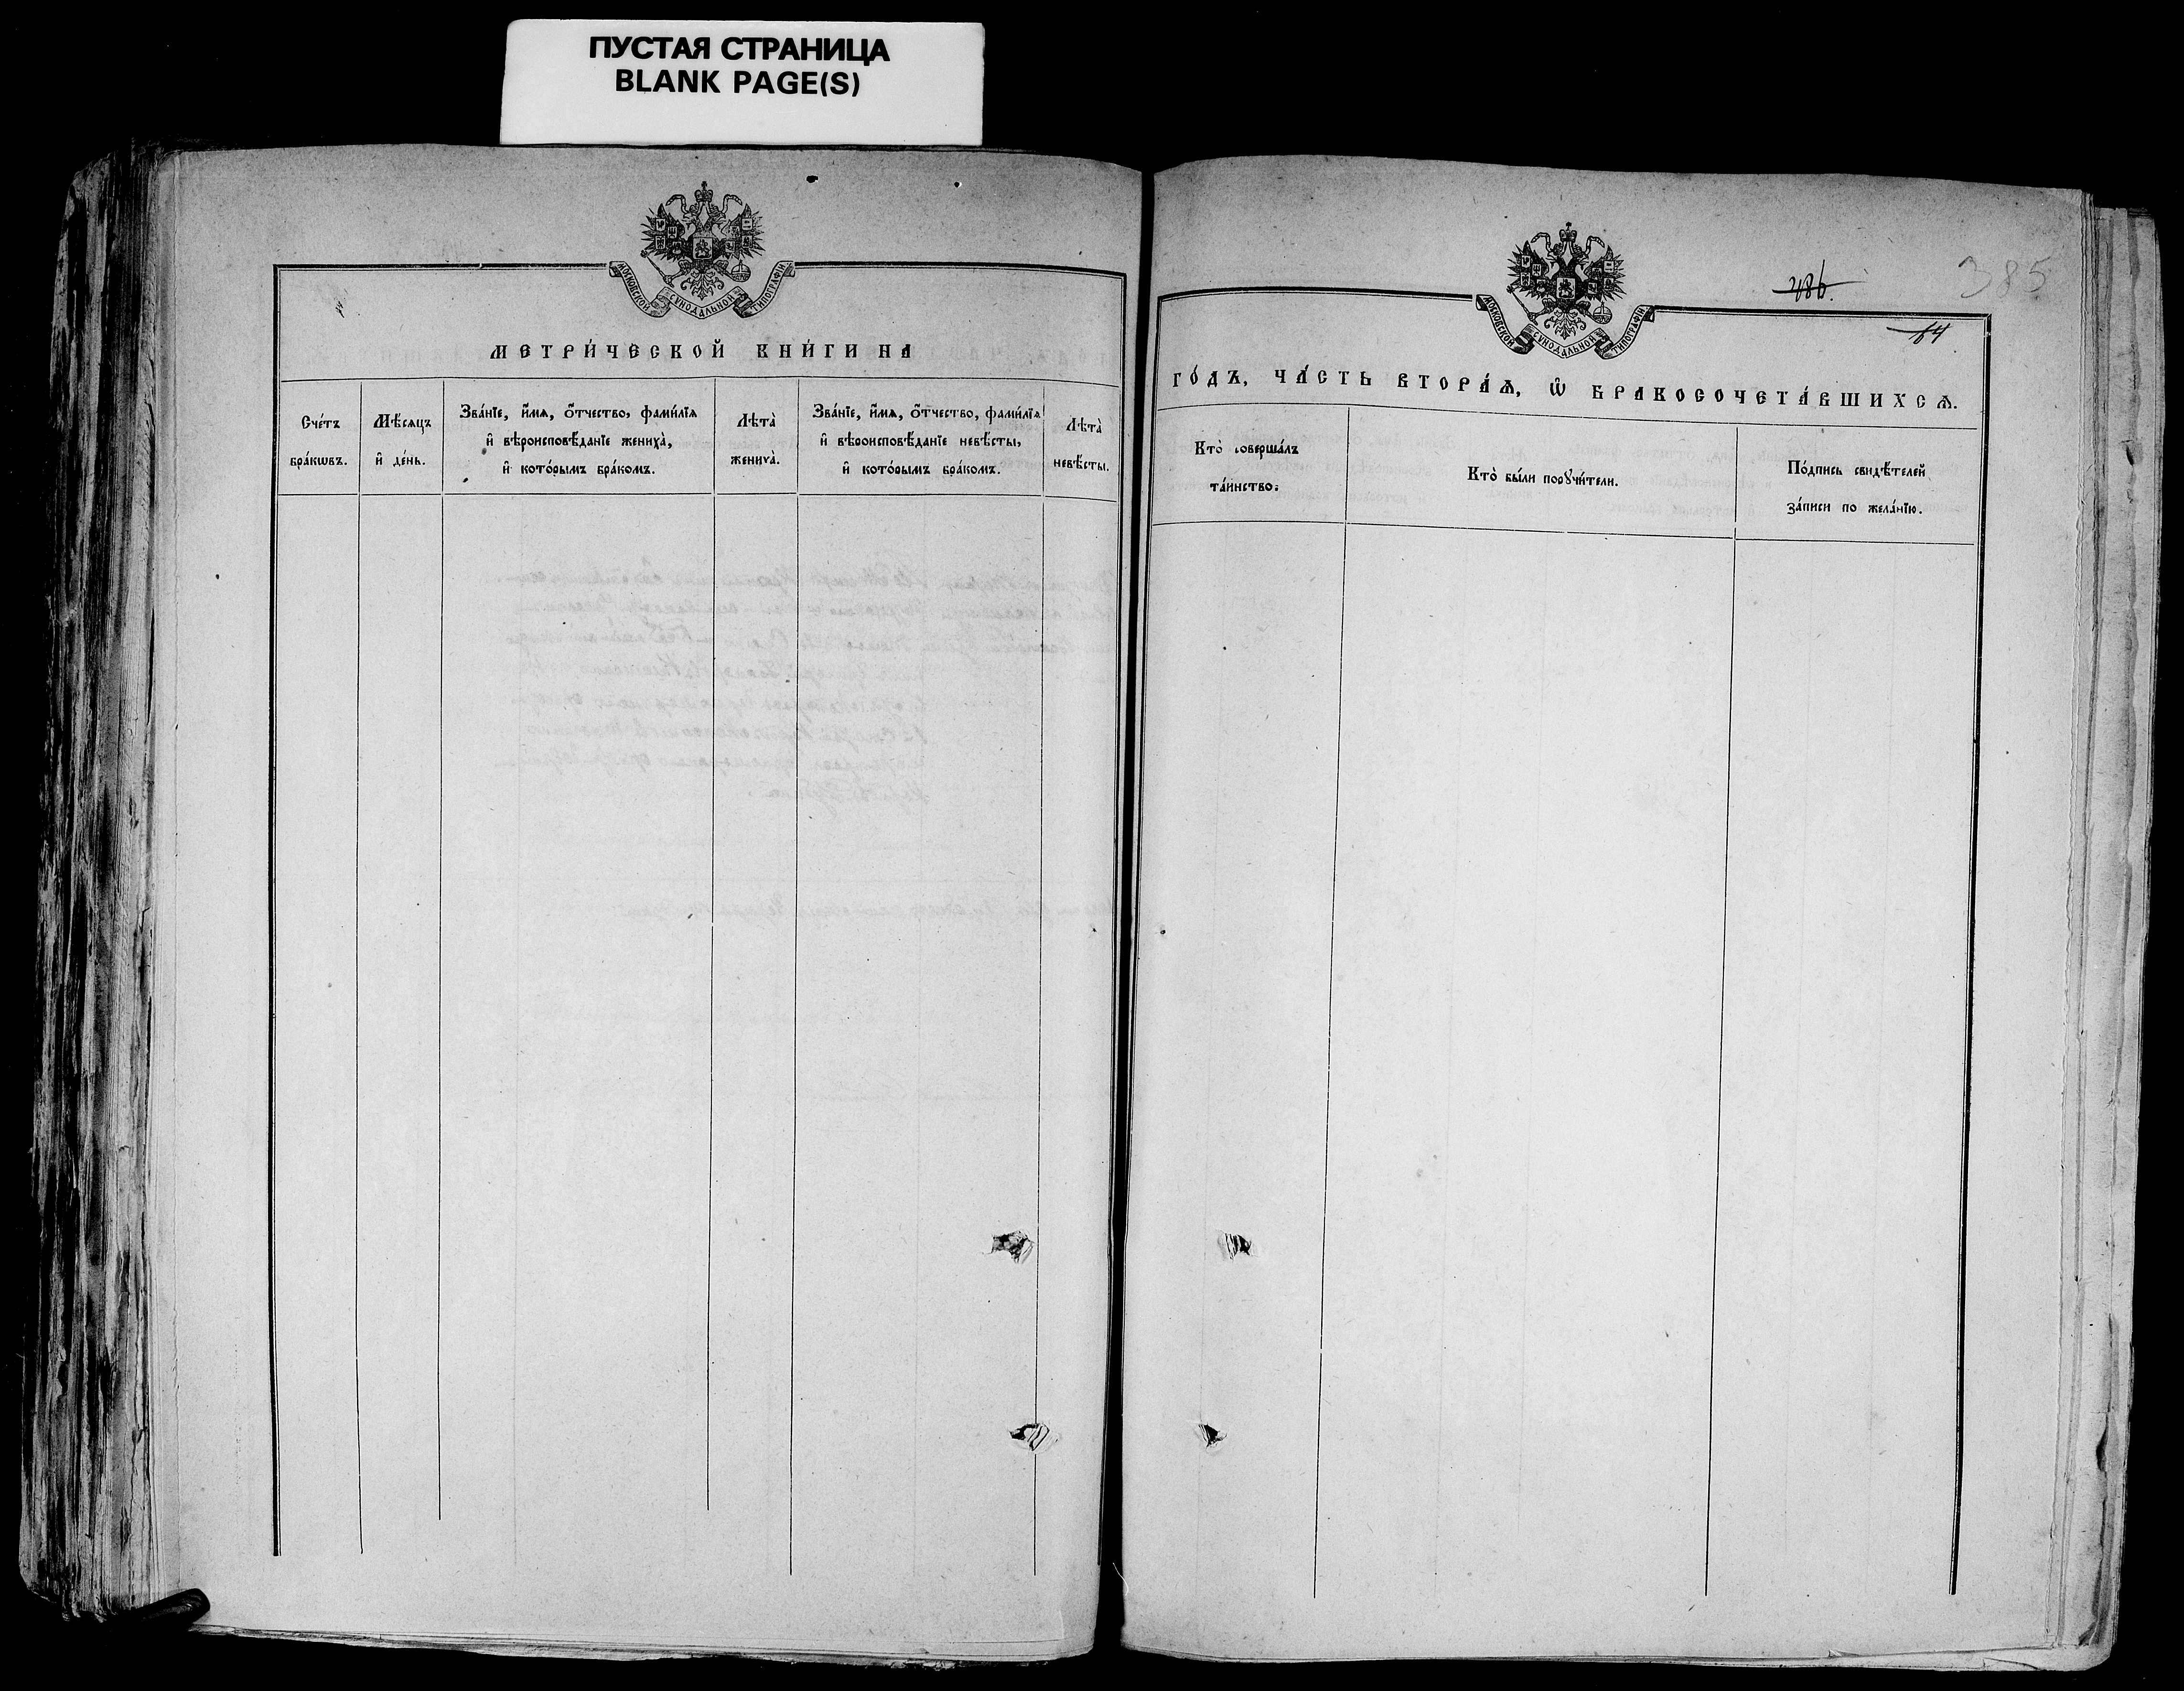 ПУСТАЯ СТРАНИЦА
BLANK PAGE(S)
МОСКОВСКОЙ СУНОДАЛЬНОЙ ТИПОГРАФІИ
МЕТРИ́ЧЕСКОЙ КНИ́ГИ НА
Сче́тъ бра́кѡвъ.
Мѣ́сяцъ и҆ де́нь.
Зва́нїе, и҆́мѧ, ѻ҆́тчество, фами́лїѧ
и҆ вѣроисповѣ́данїе жениха̀,
и҆ кото́рымъ бра́комъ.
Лѣта̀ жениха̀.
Зва́нїе, и҆́мѧ, ѻ҆́тчество, фами́лїѧ
и҆ вѣроисповѣ́данїе невѣ́сты,
и҆ кото́рымъ бра́комъ.
Лѣта̀ невѣ́сты.
МОСКОВСКОЙ СУНОДАЛЬНОЙ ТИПОГРАФІИ
486.
385
64
ГО́ДЪ, ЧА́СТЬ ВТОРА́Ѧ, Ѡ҆ БРАКОСОЧЕТА́ВШИХСѦ.
Кто̀ соверша́лъ
та́инство.
Кто̀ бы́ли порꙋчи́тели.
По́дпись свидѣ́телей
за́писи по жела́нїю.